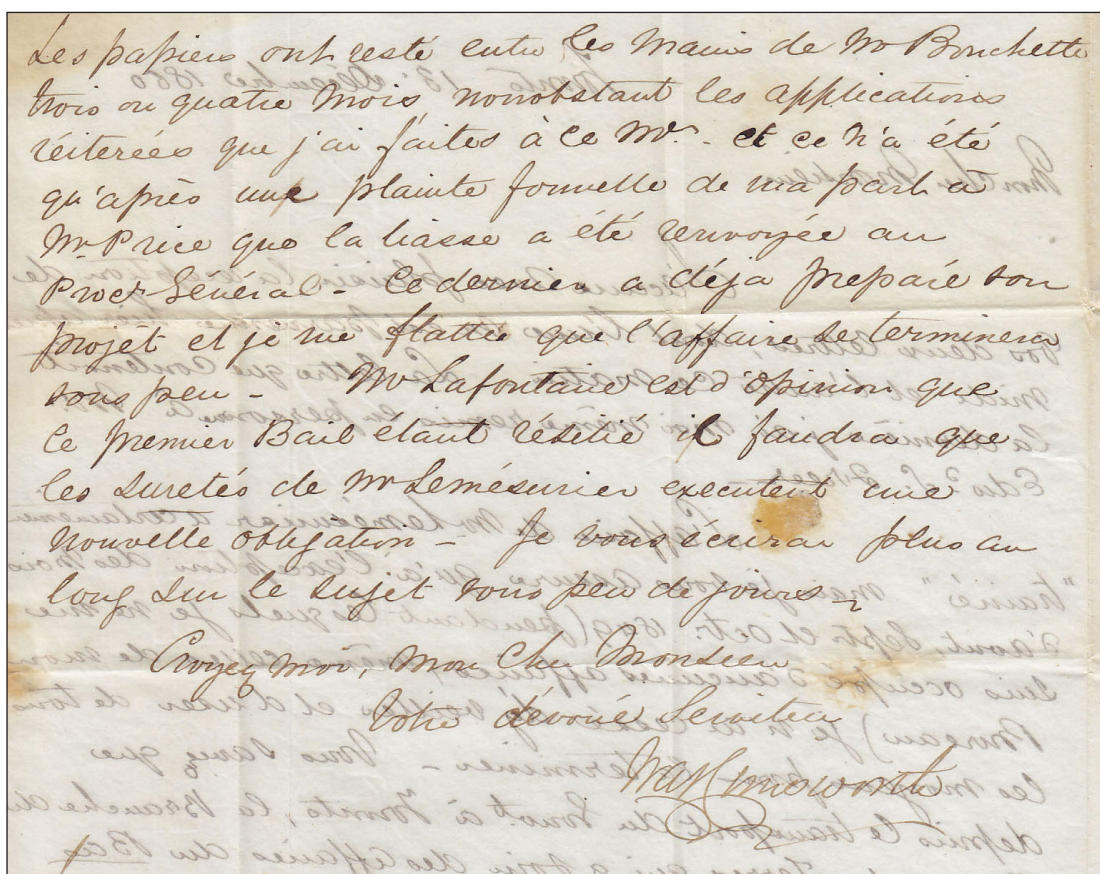 Les papiers ont resté entre les mains de Mr Bouchette
trois ou quatre mois nonobstant les applications
réiterées que j'ai faites à ce Mr. - et ce n'a été
qu'après une plainte formelle de ma part à
Mr Price que la liasse a été renvoyée au
Procr Général - Ce dernier a déja preparé son
projèt et je me flatte que l'affaire se terminera
sous peu - Mr Lafontaine est d'opinion que
le premier Bail étant résilié il faudra que
les suretés de Mr Lemésurier executent une
nouvelle obligation - Je vous écrirai plus au
long sur le sujet sous peu de jours -
Croyez moi, Mon Cher Monsieur
Votre dévoué Serviteur